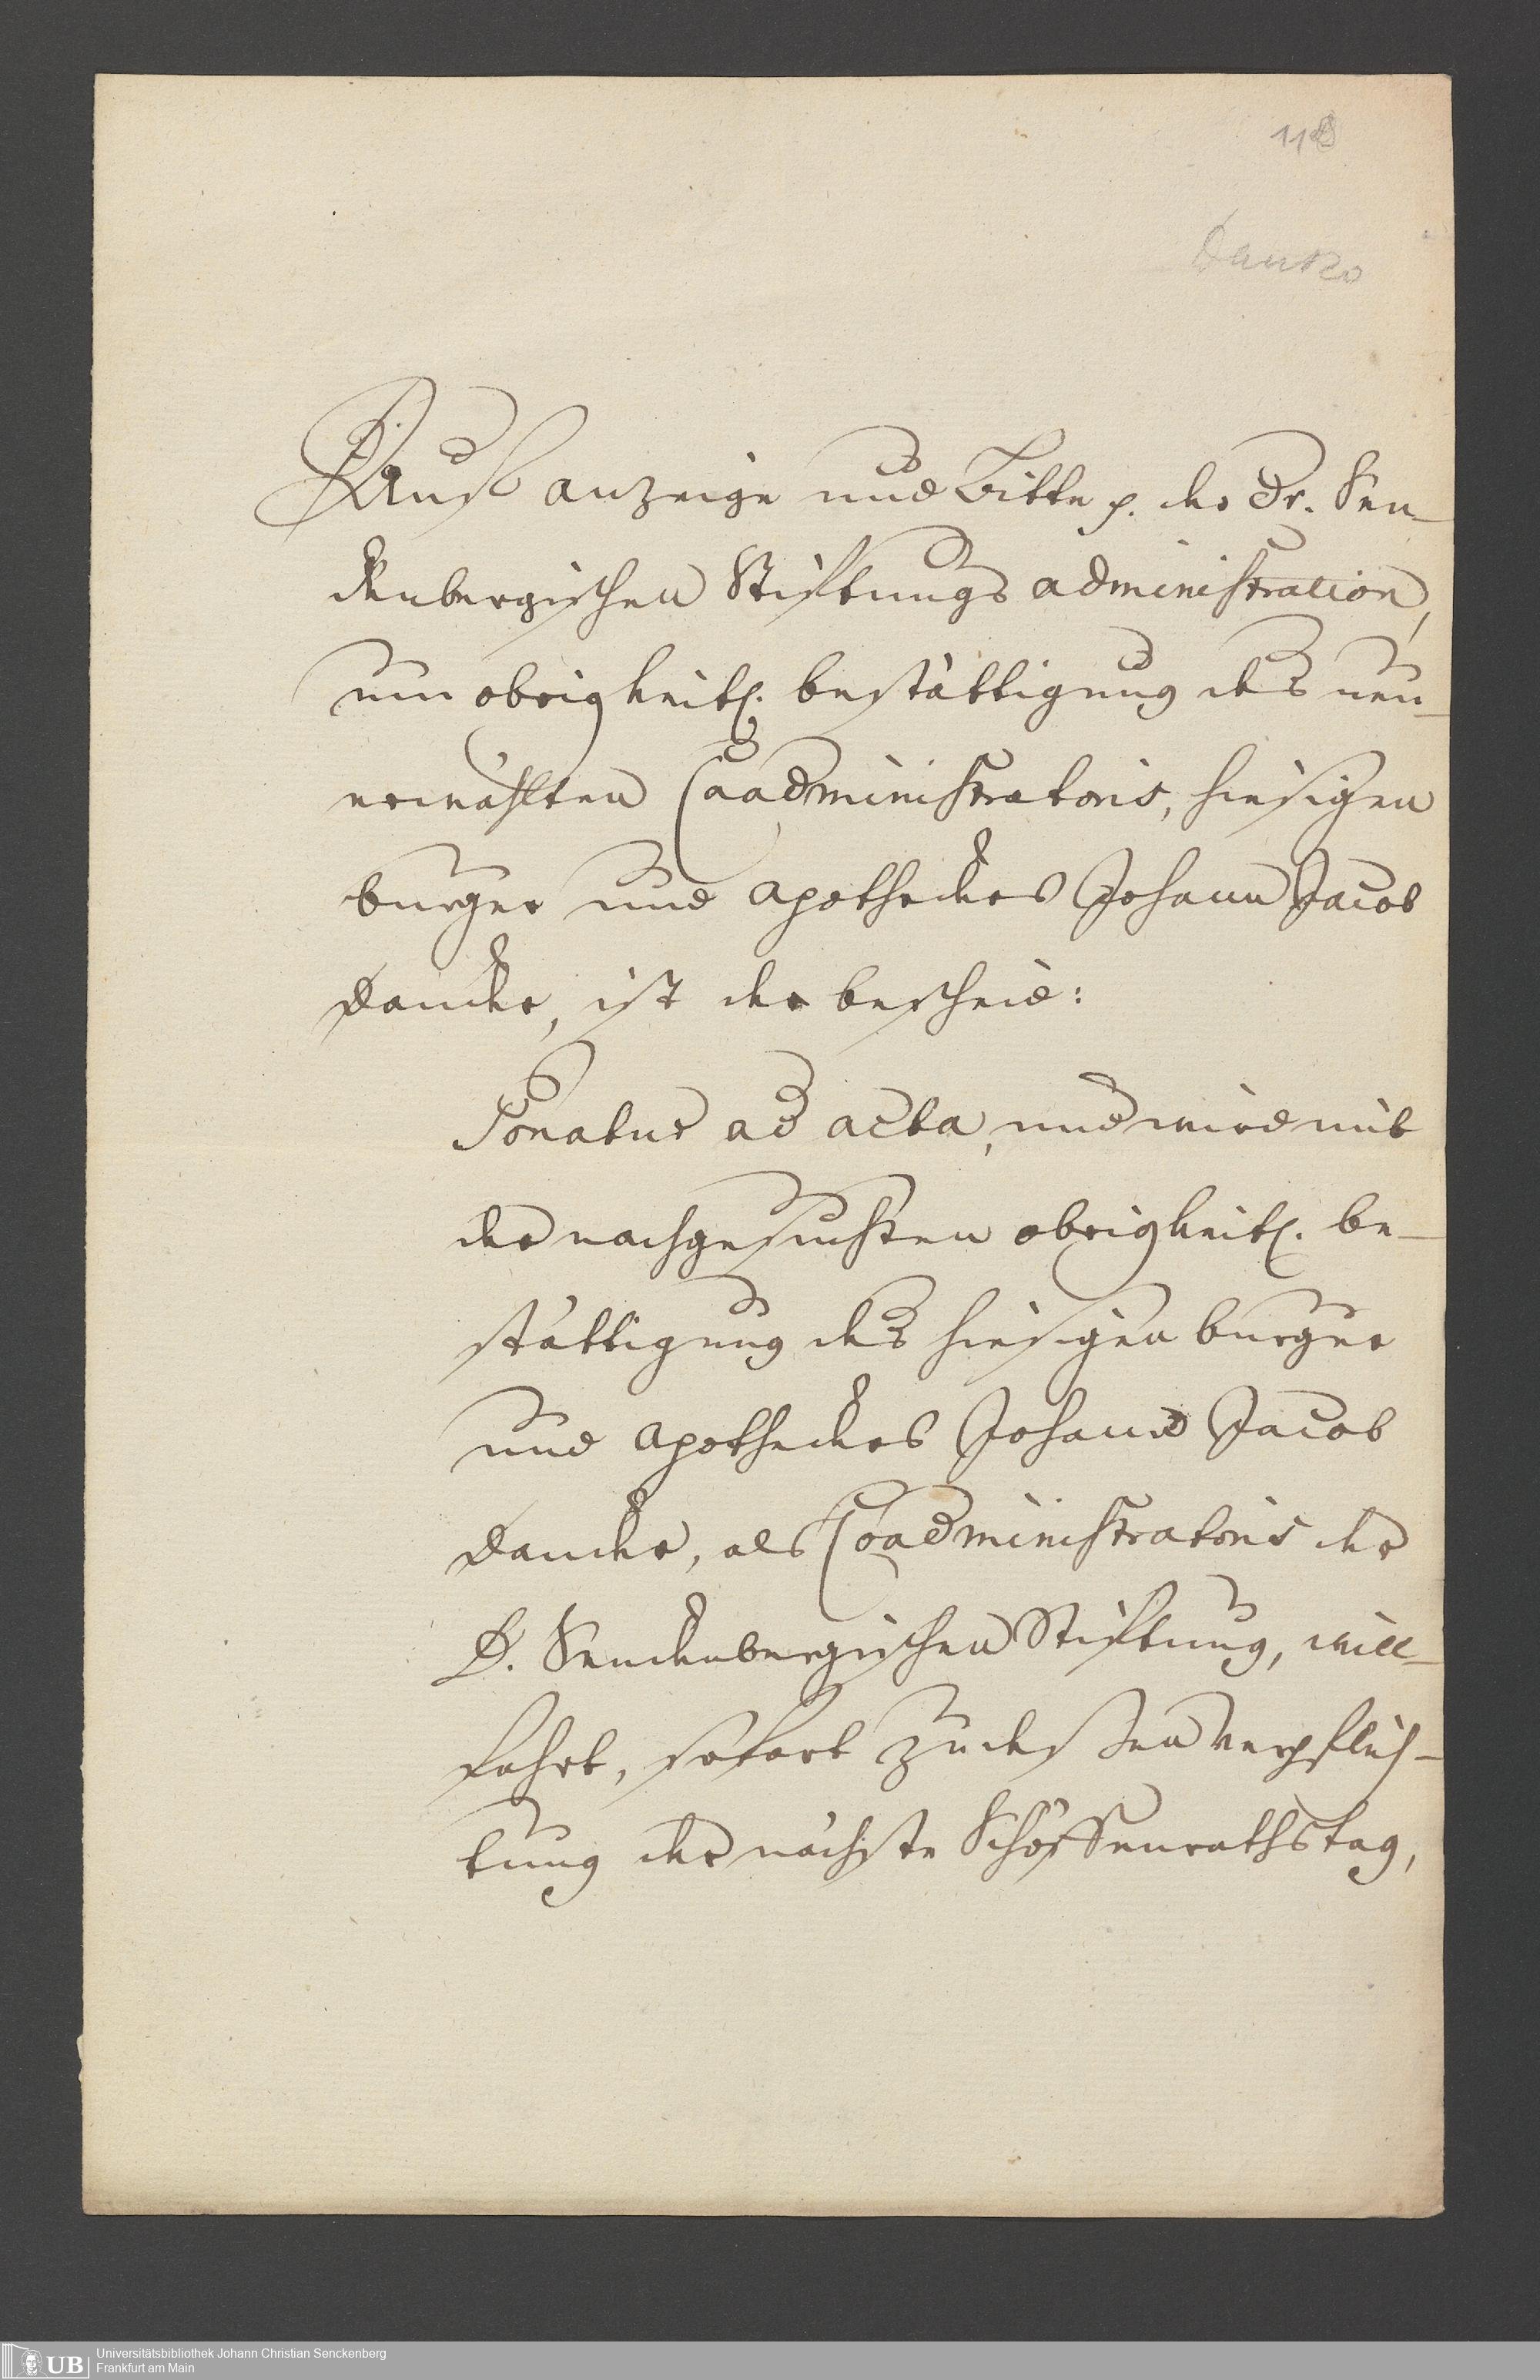 118
Danko
Auf anzeige und Bitte p. der Dr. Sen-
ckenbergischen Stiftungs administration,
um obrigkeitl. bestättigung des neu-
erwählten Coadministratoris, hiesigen
burger und apotheckers Johann Jacob
Dancker, ist der bescheid:
Ponatur ad acta, und wird mit
der nachgesuchten obrigkeitl. be-
stättigung des hiesigen burger
und apotheckers Johann Jacob
Dancker, als Coadministratoris der
D. Senckenbergischen Stiftung, will-
fahrt, sofort zu dessen verpflich-
tung der nächste Schöffenrathstag,
UB
Universitätsbibliothek Johann Christian Senckenberg
Frankfurt am Main